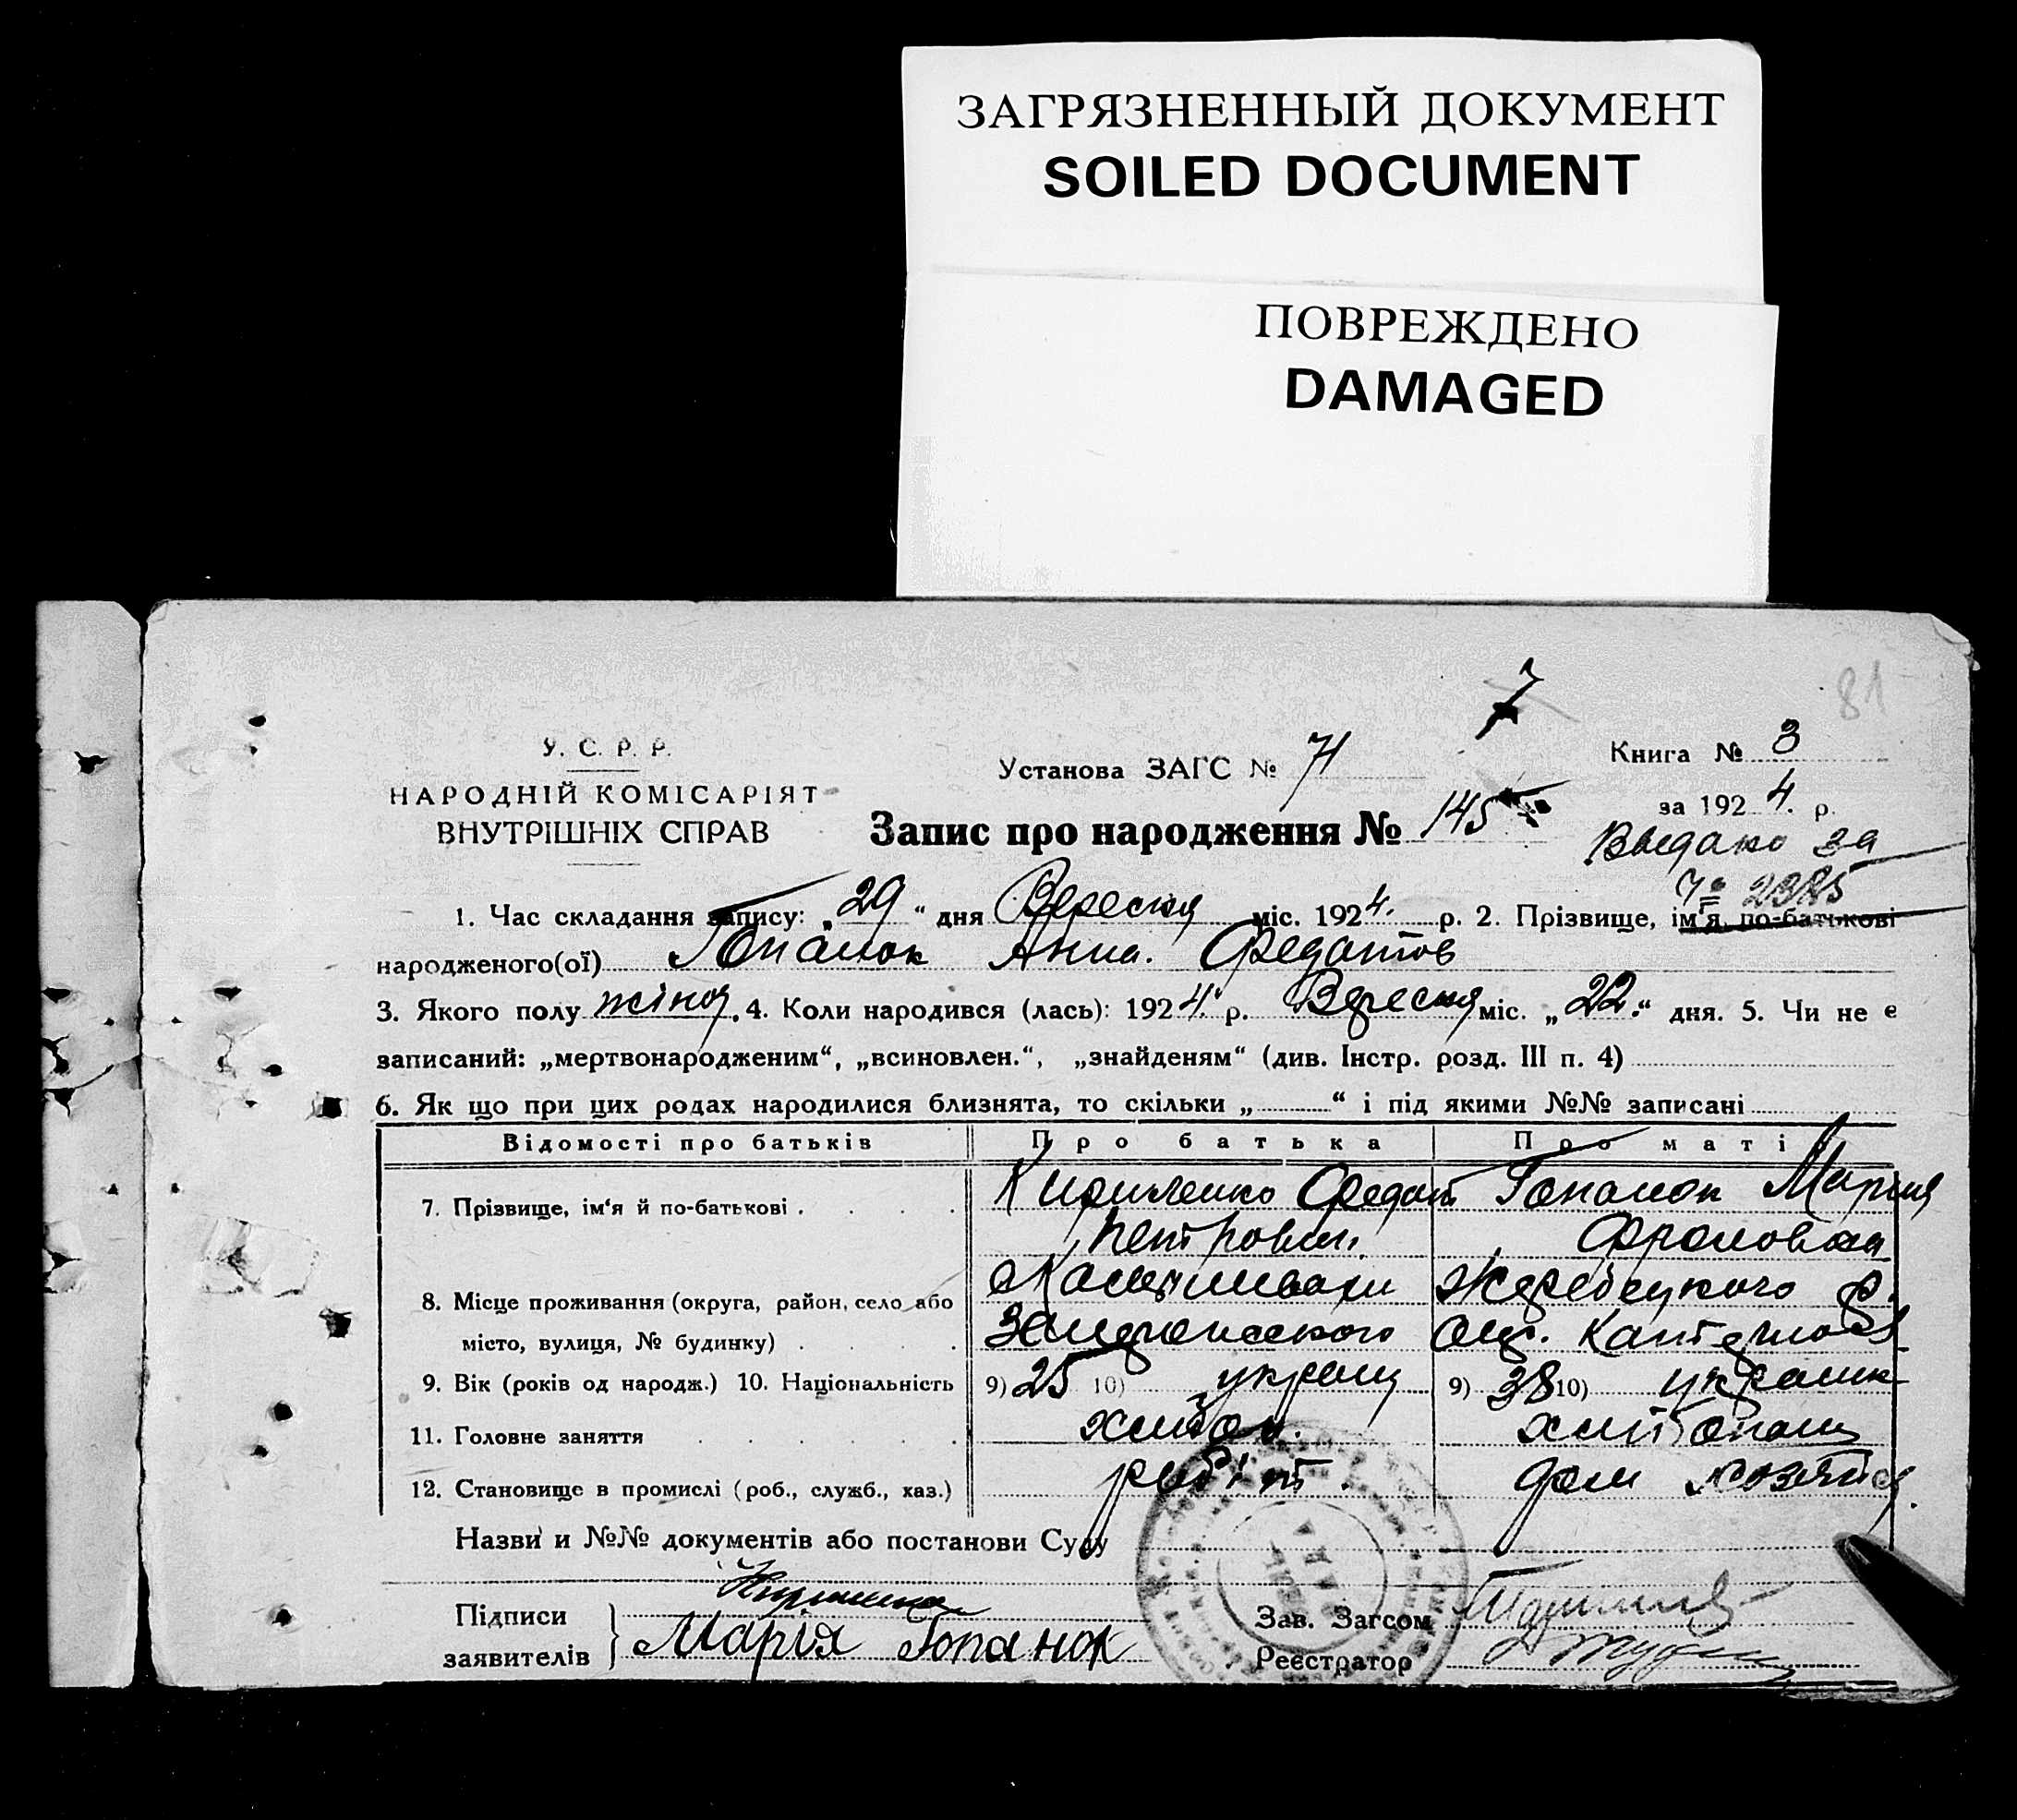 ЗАГРЯЗНЕННЫЙ ДОКУМЕНТ
SOILED DOCUMENT
ПОВРЕЖДЕНО
DAMAGED
7
81
У. С. Р. Р.
НАРОДНІЙ КОМІСАРІЯТ
ВНУТРІШНІХ СПРАВ
Установа ЗАГС № 71
Книга № 3
за 1924. р.
Запис про народження № 145
Выдано за
№ 2385
1. Час складання запису: „29“ дня Вересня міс. 1924. р. 2. Прізвище, ім'я, по-батькові
народженого(ої) Гопанок Анна. Федотов
3. Якого полу жіноч. 4. Коли народився (лась): 1924. р. Вересня міс. „22.“ дня. 5. Чи не є
записаний: „мертвонародженим“, „всиновлен.“, „знайденям“ (див. Інстр. розд. III п. 4)
6. Як що при цих родах народилися близнята, то скільки „ “ і під якими №№ записані
Відомості про батьків Про батька Про маті
7. Прізвище, ім'я й по-батькові . . . . Кириленко Федот Гопанок Мария
Петрович Фроловна
8. Місце проживання (округа, район, село або Жеребецкого р.
місто, вулиця, № будинку) . . . . Запорожского Окр.
9. Вік (років од народж.) 10. Національність 9) 25 10) украиц 9) 38 10) украинк
11. Головне заняття . . . . . . хлібор. хлібопаш
12. Становище в промислі (роб., служб., хаз.) робіт. дом хозяйка
Назви и №№ документів або постанови Суду
Підписи
заявителів
Марія Гопанок
Зав. Загсом
Реєстратор